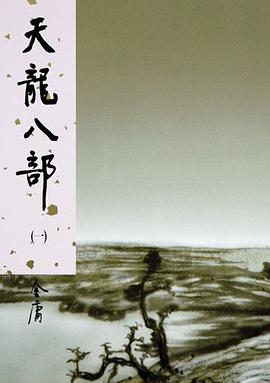 天龍八部
(一)
金庸